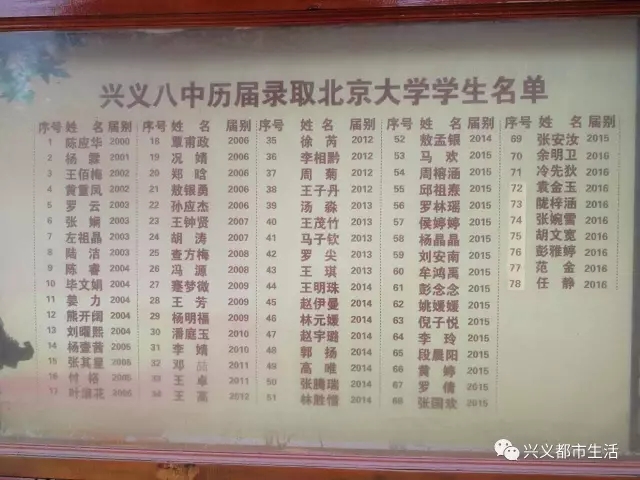 兴义八中历届录取北京大学学生名单
序号 姓 名 届别 序号 姓 名 届别 序号 姓 名 届别 52 敖孟银 2014 69 张安汝 2015
1 陈应华 2000 18 覃甫政 2006 35 徐芮 2012 53 马欢 2015 70 余明卫 2016
2 杨霖 2001 19 况婧 2006 36 李相黔 2012 54 周榕涵 2015 71 冷先狄 2016
3 王佰梅 2002 20 郑晗 2006 37 周菊 2012 55 邱祖焘 2015 72 袁金玉 2016
4 黄重凤 2002 21 敖银勇 2006 38 王子丹 2012 56 罗林瑶 2015 73 陇梓涵 2016
5 罗云 2003 22 孙应杰 2006 39 汤淼 2013 57 侯婷婷 2015 74 张婉雪 2016
6 张娴 2003 23 王钟贤 2007 40 王茂竹 2013 58 杨晶晶 2015 75 胡文宽 2016
7 左祖晶 2003 24 胡涛 2007 41 马子钦 2013 59 刘安南 2015 76 彭雅婷 2016
8 陆洁 2003 25 查方梅 2008 42 罗尖 2013 60 牟鸿禹 2015 77 范金 2016
9 陈睿 2004 26 冯源 2008 43 王琪 2013 61 彭念念 2015 78 任静 2016
10 毕文娟 2004 27 蹇梦微 2009 44 王明珠 2014 62 姚媛媛 2015
11 姜力 2004 28 王芳 2009 45 赵伊曼 2014 63 倪子悦 2015
12 熊开阔 2004 29 杨明福 2009 46 林元媛 2014 64 李玲 2015
13 刘曜熙 2004 30 潘庭玉 2010 47 赵宇璐 2014 65 段晨阳 2015
14 杨壹茜 2005 31 李婧 2010 48 郭扬 2014 66 黄婷 2015
15 张其星 2005 32 邓 2011 49 高唯 2014 67 罗倩 2015
16 付铭 2005 33 王卓 2011 50 张腾瑞 2014 68 张国欢 2015
17 叶 花 2005 34 王高 2012 51 林胜惜 2014
兴义都市生活